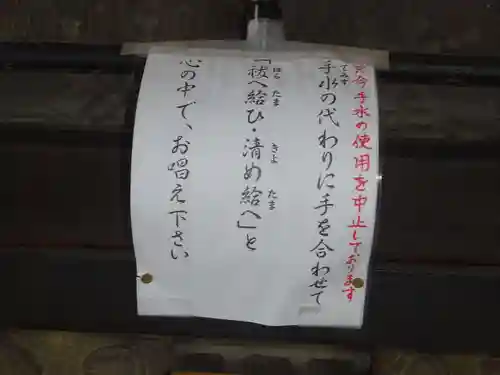 只今手水の使用を中止しております
手水の代わりに手を合わせて
「祓へ給ひ・清め給へ」と
心の中で、お唱え下さい